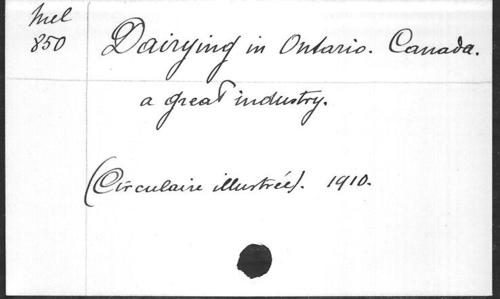 Mel
850
Dairying in Ontario. Canada.
a great industry.
(Circulaire illustrée). 1910.